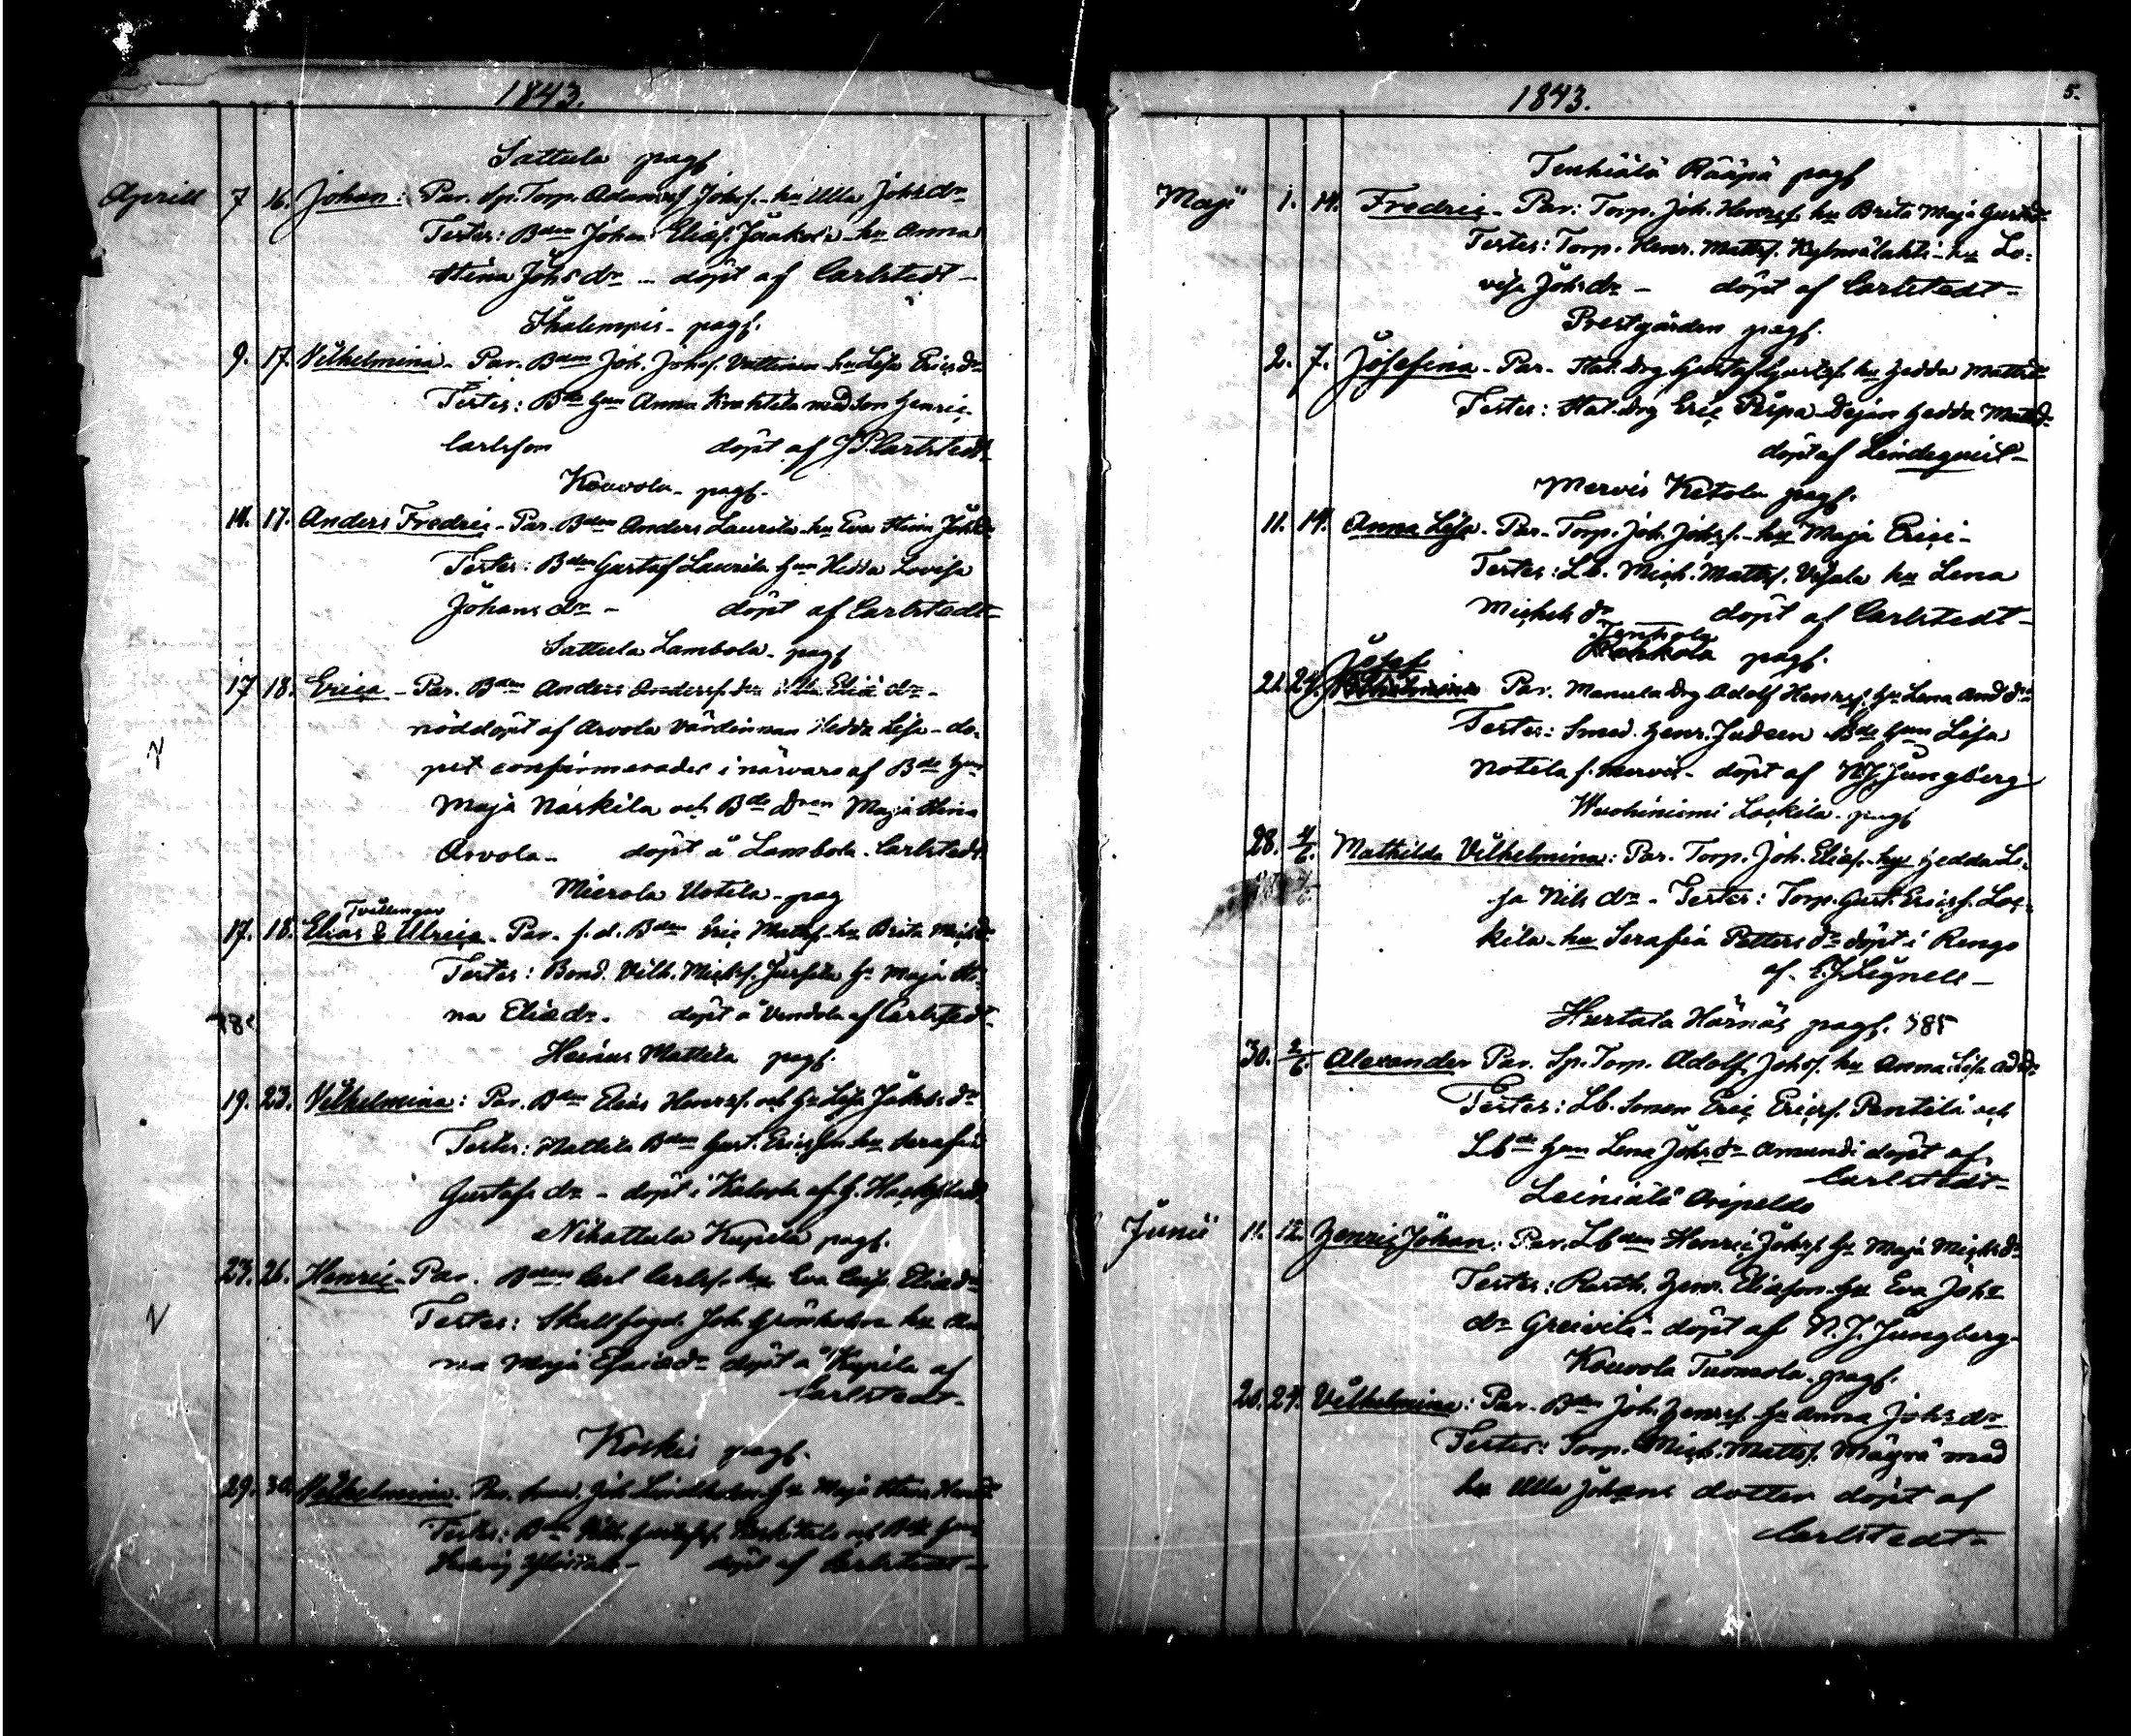 1843.
Sattula pagf
Aprill 7 16. Johan: Par. Sp. Torp. Adam Johsf. hu Ulla Johsdr
Testes: Bdn Johan Eliasf. Jaakola hu Anna
Stina Johsdr - döpt af Carlstedt -
Ihalempis - pagf.
9. 17. Vilhelmina - Par. Bdn Joh. Johsf. hu Lisa Ericsdr
Testes: Bde hun Anna Krahtila med son Henric
Carlsson döpt af J P Carlstedt
Kouvola - pagf.
14. 17. Anders Fredric - Par. Bdn Anders Laurila hu Eva Stina Johsdr
Testes: Bdn Gustaf Laurila hun Hedda Lovisa
Johansdr - döpt af Carlstedt -
Sattula Lambola - pagf
17 18. Erica - Par. Bdn Anders Andersf. Ulla Eliædr -
nöddöpt af Arvola värdinnan Hedda Lisa - do-
pet confirmerades i närvaro af Bde hun
Maja Näskila och Bde dren Maja Stina
Arvola - döpt å Lambola. Carlstedt
Mierola Uotila - pag
Tvillingar
17. 18. Elias & Ulrica - Par. f. d. Bdn Eric Mattsf. hu Brita Michsdr
Testes: Bond. Vilh. Michsf. Jussila hu Maja Sti-
na Eliædr. döpt å Vendola af Carlstedt
Heinus Mattila pagf.
19. 23. Vilhelmina: Par. Bdn Elias Henrsf. och hu Lisa Jakobsdr
Testes: Mattila Bdn Gust. Ericsson hu Serafia
Gustafsdr - döpt i Kalvola af
Nihattula Kupila pagf.
23. 26. Henric - Par. Bdn Carl Carlsf. hu Eva Eliædr
Testes: Skallfogd. Joh. Grönholm hu An
na Maja Esaiædr döpt å Kupila af
Carlstedt -
Koskis pagf.
29. 30. Vilhelmina. Par. Smed. Joh. Lindholm hu Maja Stina
Testes: Bdn Vilh. Gustafsf. och Bde hun
Hedvig döpt af Carlstedt -
1843. 5.
Tenhiälä Rääpä pagf
Maji 1. 14. Fredric - Par: Torp. Joh. Henrsf. hu Brita Maja Gustdr
Testes: Torp. Henr. Mattsf. Kylmälahti - hu Lo-
visa Johsdr - döpt af Carlstedt -
Prestgården pagf.
2. 7. Josefina - Par - Stat. drg Gustaf Gustsf. hu Hedda Mattsdr
Testes: Stat. drg Eric Pispa Dejan Hedda Mattsd.
döpt af Lindequist -
Mervis Ketola pagf.
11. 14. Anna Lisa - Par - Torp. Joh. Johsf. - hu Maja Erici -
Testes: Lb. Mich. Mattsf. Vesala hu Lena
Michelsdr döpt af Carlstedt -
Jenkola
pagf.
Josef
21. 24. Par. Manula drg Adolf Henrsf. hu Lena And.dr
Testes: Smed. Henr. Judeen Bde hun Lisa
Notila f. Mervis - döpt af N J Jungberg
Wuohiniemi Lockila - pagf
28. 4/6. Mathilda Vilhelmina: Par. Torp. Joh. Eliasf. - hu Hedda Li-
sa Nilsdr - Testes: Torp. Gust. Ericsf. Loc-
kila - hu Serafia Pettersdr döpt i Rengo
af E. J. Lignell -
Hurtala Härnäs pagf. 585
30. 2/6. Alexander Par. Sp. Torp. Adolf Johsf. hu Anna Lisa Addr
Testes: Lb. Sonen Eric Ericsf. Pentilä och
Lbde hun Lena Johsdr Amundi döpt af
Carlstedt -
Leiniälä
Junii 11. 12. Henric Johan: Par. Lbden Henric Johsf. hu Maja Michsdr
Testes: Rusth. Henr. Eliasson hu Eva Johs
dr Greivilä - döpt af N. J. Jungberg
Kouvola Tuomola - pagf.
20. 24. Vilhelmina: Par. Bdn Joh. Henrsf. hu Anna Johsdr
Testes: Torp. Mich. Mattsf. Mäyrä med
hu Ulla Johans dotter döpt af
Carlstedt -